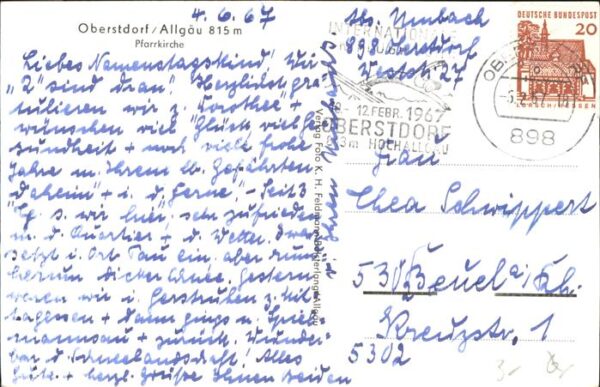 4. 6. 67
Oberstdorf/Allgäu 815 m
Pfarrkirche
Liebes Namenstagskind! Wir
"2" sind dran! Herzlichst gra-
tulieren wir z. Dorothee +
wünschen viel Glück, viel Ge-
sundheit + noch viele frohe
Jahre m. Ihrem lb. Gefährten
"Daheim" + i. d. Ferne". Seit 3
Tg. s. wir hier, sehr zufrieden
m. d. Quartier + d. Wetter. Zwar
setzt i. Ort Tau ein, aber rund-
herum dicker Schnee. Gestern
waren wir i. Gerstruben z. Mit-
tagessen + dann gings n. Spiel-
mannsau + zurück. Wunder-
bar d. Schneelandschaft! Alles
Gute + herzl. Grüße Ihnen beiden
Verlag Foto K. H. Feldmann
Abs. Umbach
898 Oberstdorf
Weststr. 27
INTERNATIONALE
12. FEBR. 1967
OBERSTDORF
HOCHALLGÄU
898
DEUTSCHE BUNDESPOST
20
Frau
Thea Schwippert
53 Beuel a/Rh.
Kreuzstr. 1
5302